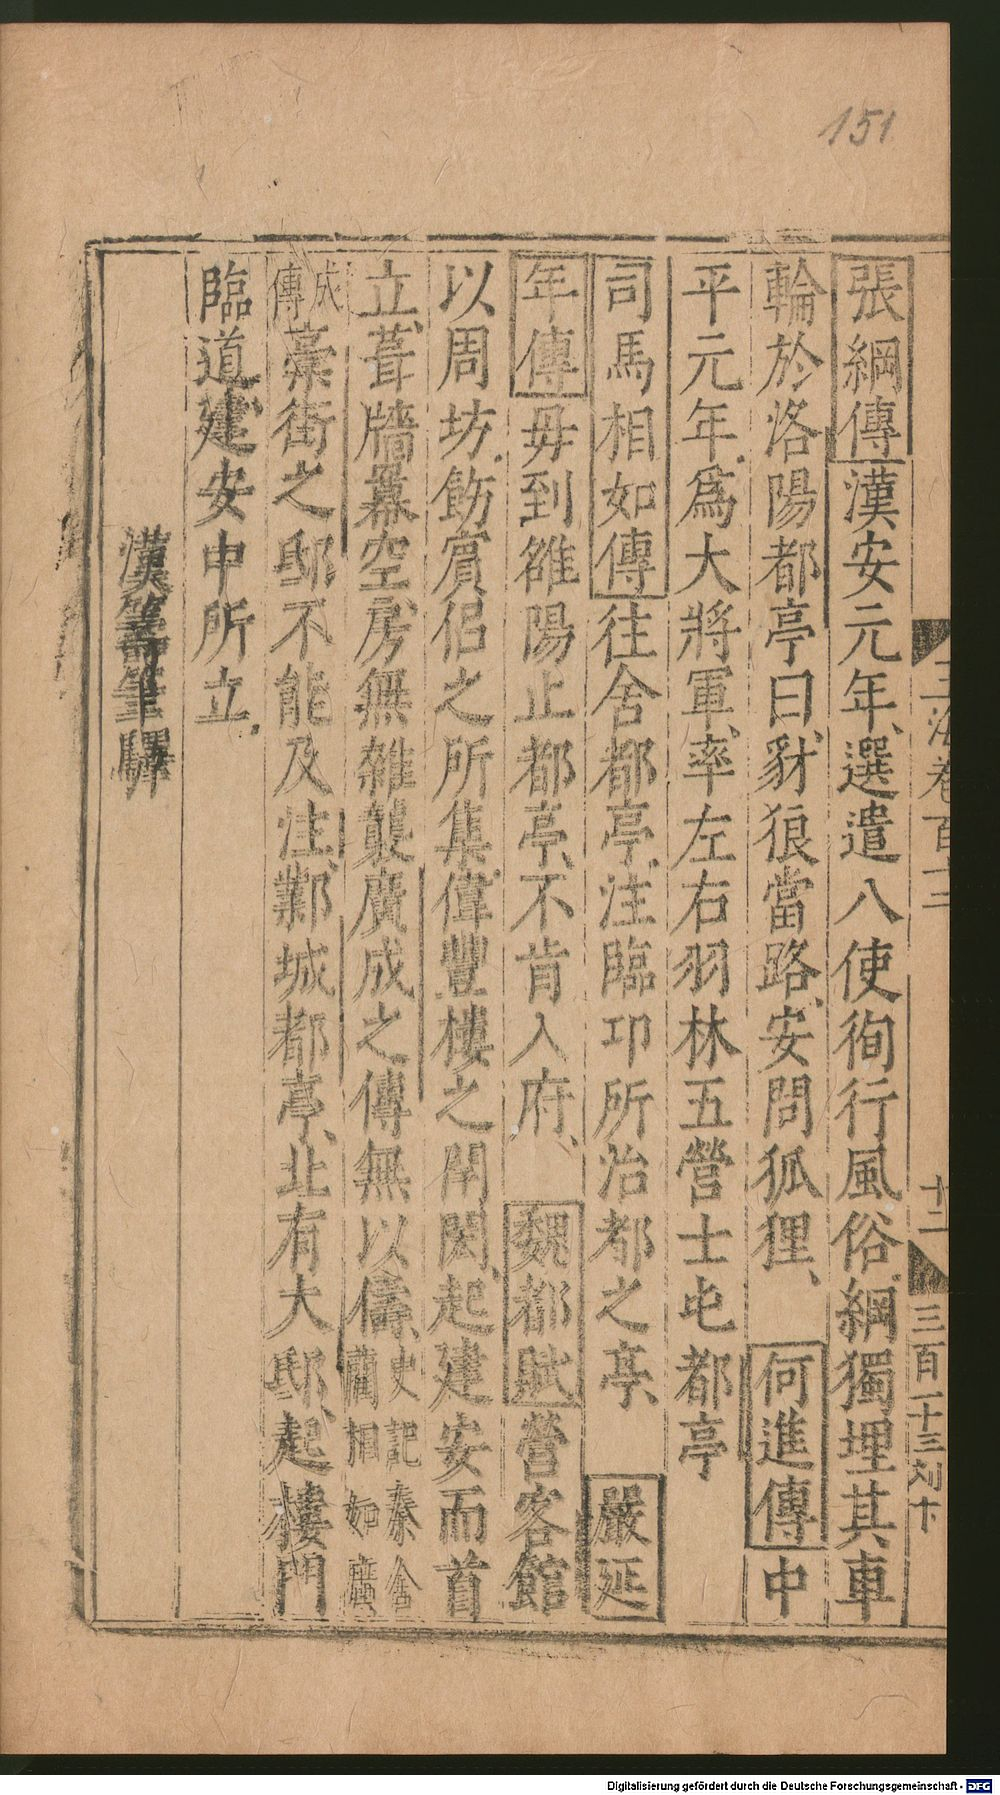 151
張綱傳漢安元年選遣八使徇行風俗綱獨埋其車
輪於洛陽都亭曰豺狼當路安問狐狸、何進傳中
平元年爲大將軍率左右羽林五營士屯都亭
司馬相如傳往舍都亭注臨卭所治都之亭、嚴延
年傳毋到雒陽止都亭不肯入府、魏都賦營客館
以周坊飭賓侣之所集偉豐樓之閈閎起建安而首
立葺牆冪空房無雜襲廣成之傳無以儔史記秦舍藺相如廣
成傳藁街之邸不能及注鄴城都亭北有大邸起樓門
臨道建安中所立
漢籌筆驛
玉海卷百
十二
三百一十三刘卞
Digitalisierung gefördert durch die Deutsche Forschungsgemeinschaft - DFG